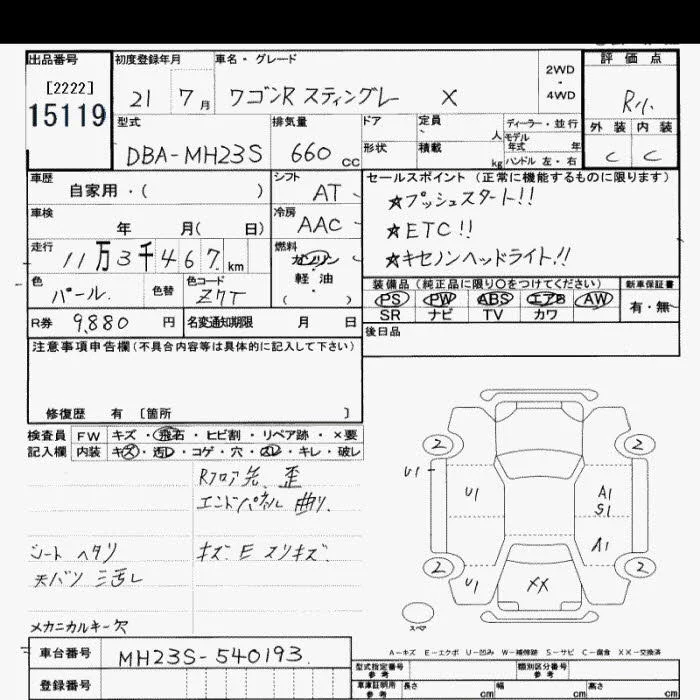 出品番号 初度登録年月 車名・グレード 評価点
[2222] 2WD
15119 21 7月 ワゴンR スティングレー X ・ 4WD R小
型式 排気量 ドア 定員 人 ディーラー・並行 外装 内装
モデル年式 年
DBA-MH23S 660cc 形状 積載 kg ハンドル 左・右 C C
車歴 シフト セールスポイント(正常に機能するものに限ります)
自家用・( ) AT ☆プッシュスタート!!
車検 冷房 ☆ETC!!
年 月( 日) AAC ☆キセノンヘッドライト!!
走行 11万3千467km 燃料 ガソリン
軽・油
・
( )
色 色替 色コード 装備品(純正品に限り○をつけてください) 新車保証書
パール Z7T PS PW ABS エアB AW 有・無
SR ナビ TV カワ
R券 9,880円 名変通知期限 月 日 後日品
注意事項申告欄(不具合内容等は具体的に記入して下さい)
修復歴 有 [箇所 ]
検査員 FW キズ・飛石・ヒビ割・リペア跡・×要
記入欄 内装 キズ・汚レ・コゲ・穴・スレ・キレ・破レ
Rフロア先、歪
エンドパネル 曲り.
シート ヘタリ キズ E スリキズ
天バリ 三汚レ
メカニカルキー欠
2 2
U1
U1 A1
S1
A1
2 2
U1 XX
スペア
A-キズ E-エクボ U-凹み W-補修跡 S-サビ C-腐食 XX-交換済
車台番号 MH23S-540193
登録番号
型式指定番号 参考 類別区分番号 参考
車庫証明用 参考 長さ cm 幅 cm 高さ cm